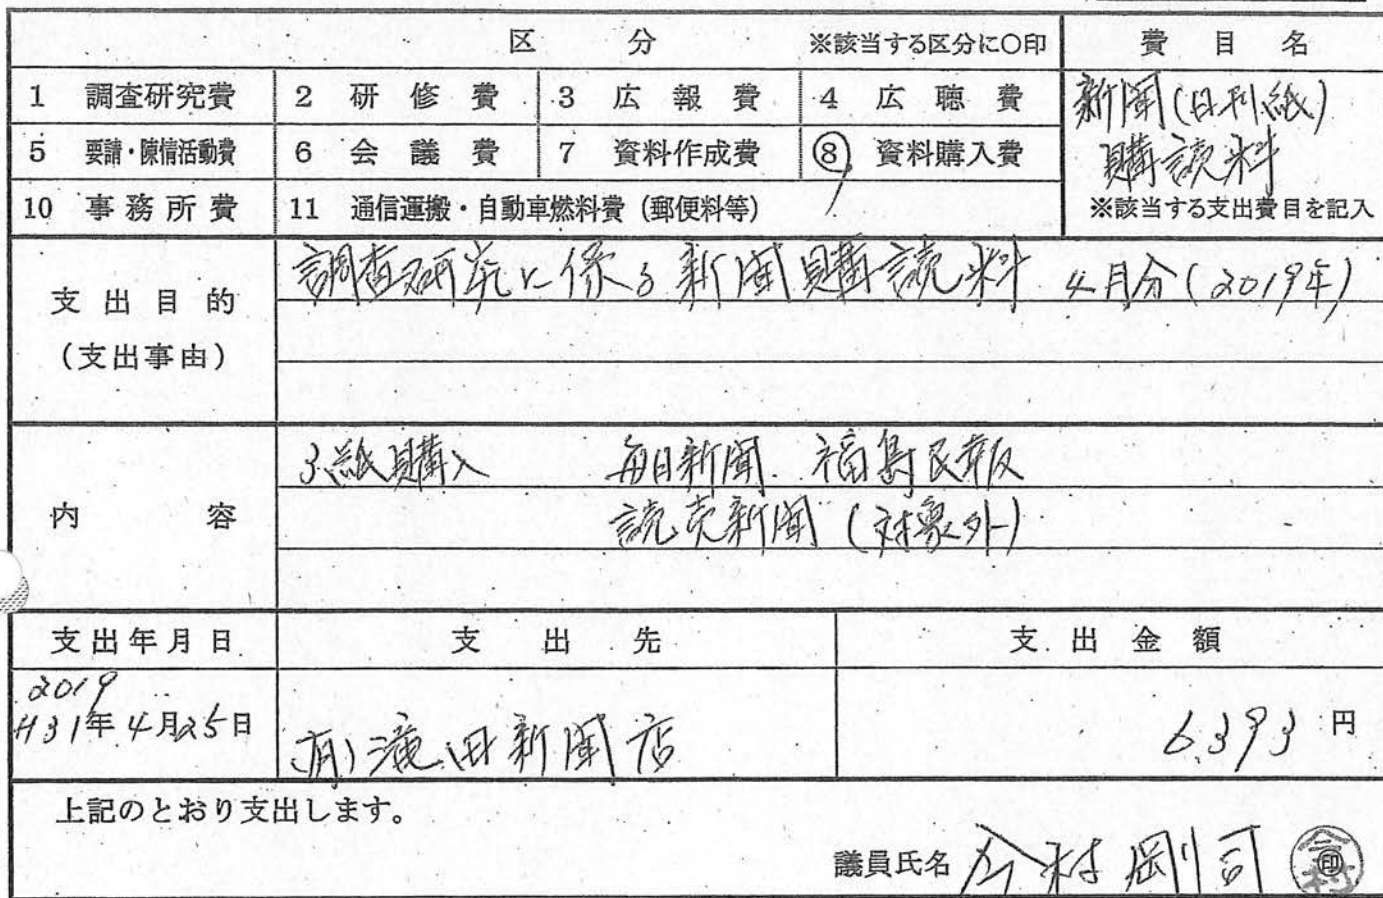 区 分 ※該当する区分に○印 費 目 名
1 調査研究費 2 研 修 費 3 広 報 費 4 広 聴 費
新聞(日刊紙)
5 要請・陳情活動費 6 会 議 費 7 資料作成費 8 資料購入費
購読料
10 事務所費 11 通信運搬・自動車燃料費(郵便料等) ※該当する支出費目を記入
支出目的
(支出事由)
調査研究に係る新聞購読料 4月分(2019年)
内 容
3紙購入 毎日新聞 福島民報
読売新聞(対象外)
支出年月日 支 出 先 支 出 金 額
2019
H31年4月25日 (有)滝田新聞店 6393円
上記のとおり支出します。
議員氏名 今村剛司 印